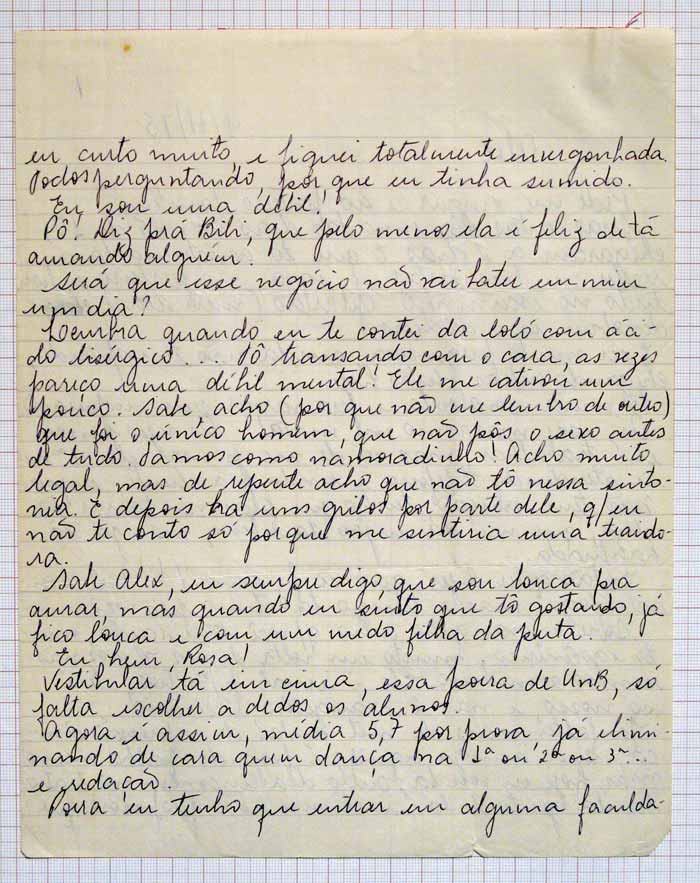 eu curto muito, e fiquei totalmente envergonhada.
Todos perguntando, por que eu tinha sumido.
Eu sou uma débil!
Pô! Diz prá Bibi, que pelo menos ela é feliz de tá
amando alguém.
Será que esse negócio não vai bater em mim
um dia?
Lembra quando eu te contei da loló com áci-
do lisérgico... Tô transando com o cara, as vezes
pareço uma débil mental! Ele me cativou um
pouco. Sabe, acho (por que não me lembro de outro)
que foi o único homem, que não pôs o sexo antes
de tudo. Vamos como namoradinho! Acho muito
legal, mas de repente acho que não tô nessa sinto-
nia. E depois ha uns grilos por parte dele, q/ eu
não te conto só porque me sentiria uma traido-
ra.
Sabe Alex, eu sempre digo, que sou louca pra
amar, mas quando eu sinto que tô gostando, já
fico louca e com um medo filha da puta.
Eu hem, Rosa!
Vestibular tá em cima, essa porra de UnB, só
falta escolher a dedos os alunos.
Agora é assim, média 5,7 por prova já elimi-
nando de cara quem dança na 1ª ou 2ª ou 3ª...
e redação.
Porra eu tenho que entrar em alguma faculda-